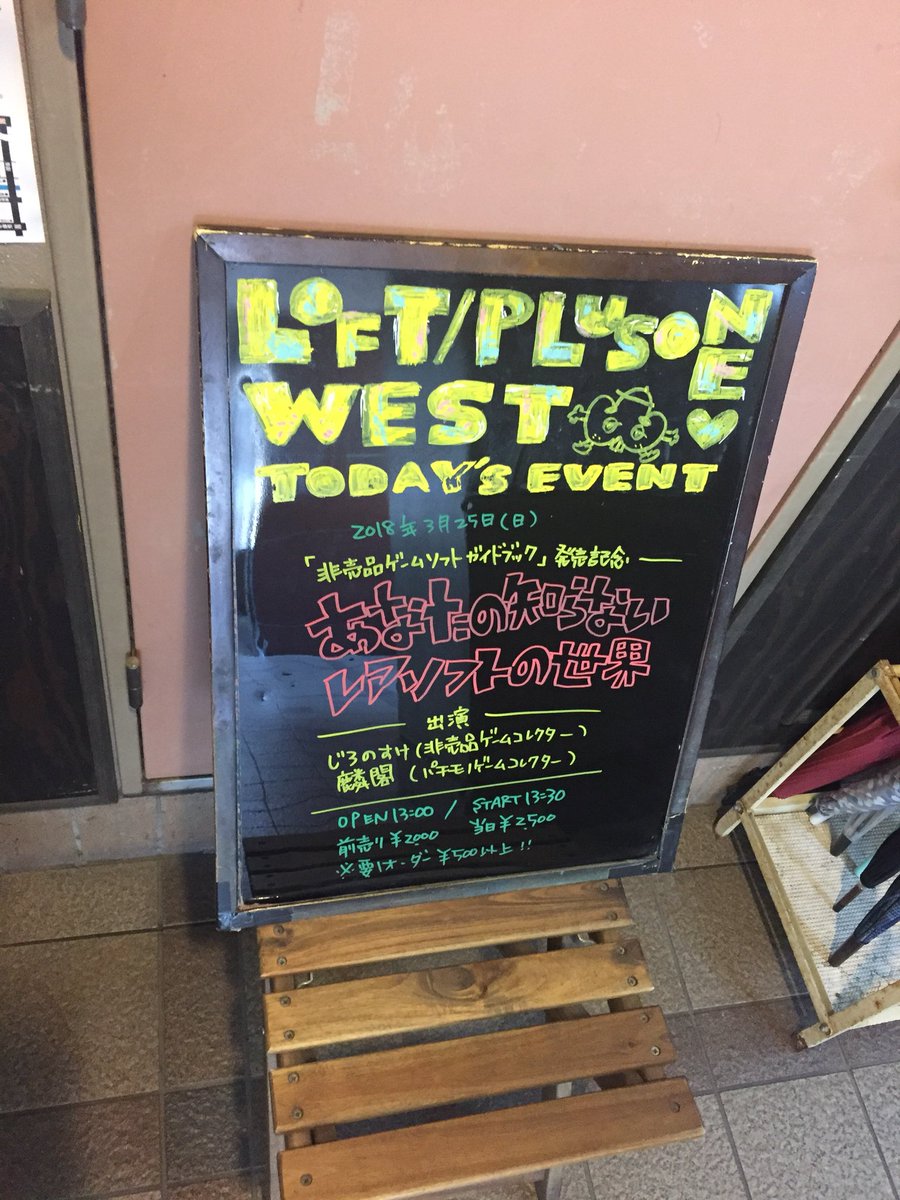 LOFT/PLUSONE
WEST
TODAY'S EVENT
2018年3月25日(日)
「非売品ゲームソフトガイドブック」発売記念
あなたの知らない
レアソフトの世界
出演
じろのすけ(非売品ゲームコレクター)
麟閣(パチモノゲームコレクター)
OPEN 13:00 / START 13:30
前売り¥2000 当日¥2,500
※要1オーダー¥500以上!!